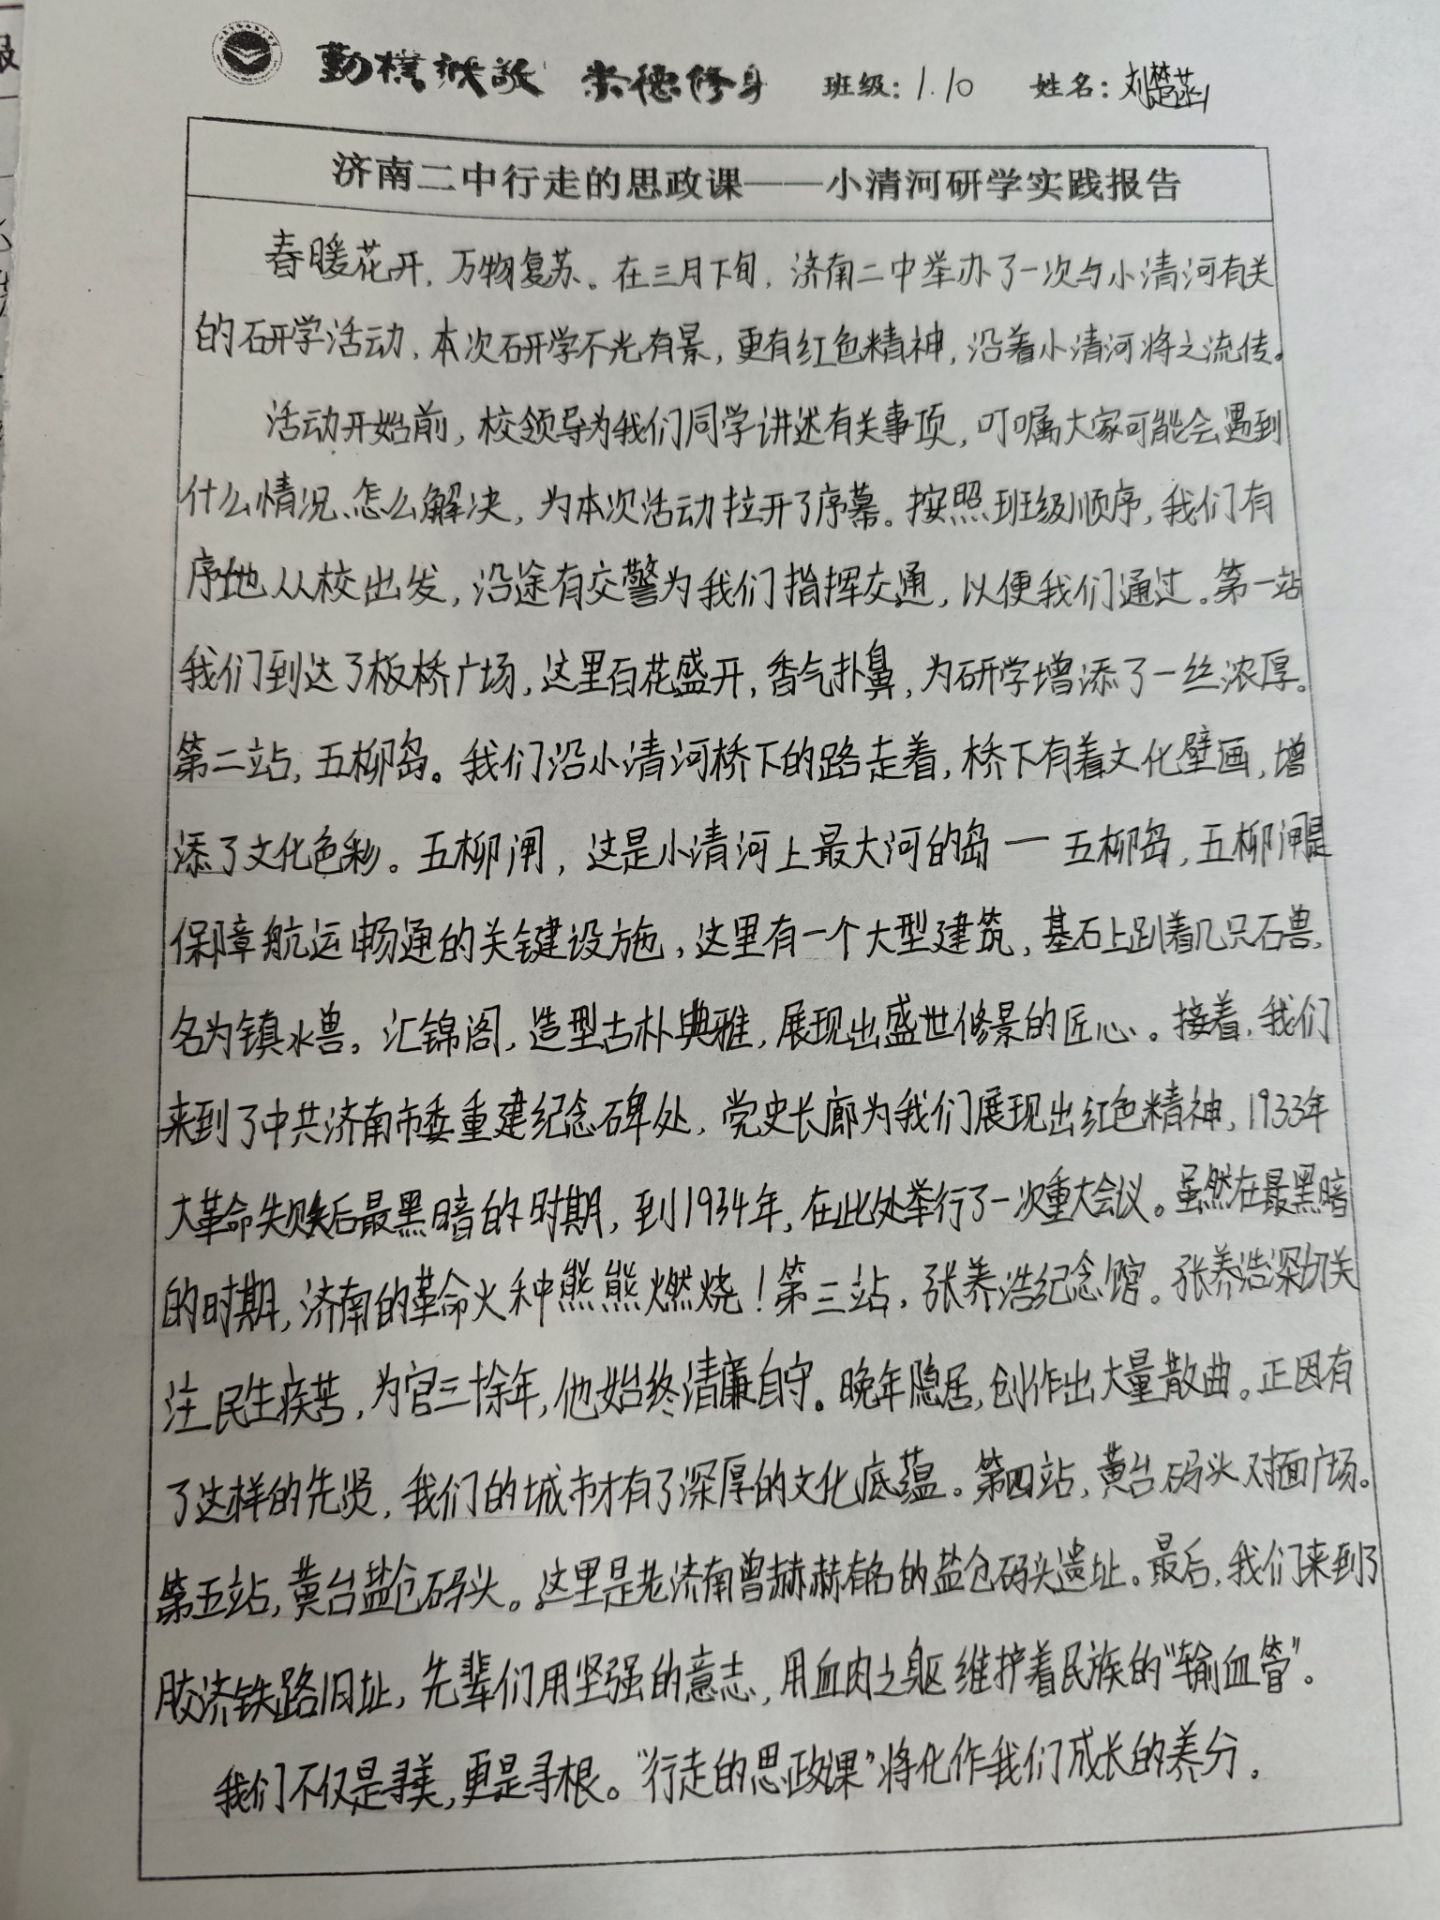 勤朴诚敬 崇德修身 班级：1.10 姓名：刘楚菡
济南二中行走的思政课——小清河研学实践报告
春暖花开，万物复苏。在三月下旬，济南二中举办了一次与小清河有关
的研学活动，本次研学不光有景，更有红色精神，沿着小清河将之流传。
活动开始前，校领导为我们同学讲述有关事项，叮嘱大家可能会遇到
什么情况、怎么解决，为本次活动拉开了序幕。按照班级顺序，我们有
序地从校出发，沿途有交警为我们指挥交通，以便我们通过。第一站
我们到达了板桥广场，这里百花盛开，香气扑鼻，为研学增添了一丝浓厚。
第二站，五柳岛。我们沿小清河桥下的路走着，桥下有着文化壁画，增
添了文化色彩。五柳闸，这是小清河上最大河的岛一五柳岛，五柳闸是
保障航运畅通的关键设施，这里有一个大型建筑，基石上趴着几只石兽，
名为镇水兽。汇锦阁，造型古朴典雅，展现出盛世修景的匠心。接着，我们
来到了中共济南市委重建纪念碑处，党史长廊为我们展现出红色精神，1933年
大革命失败后最黑暗的时期，到1934年，在此处举行了一次重大会议。虽然在最黑暗
的时期，济南的革命火种熊熊燃烧！第三站，张养浩纪念馆。张养浩深切关
注民生疾苦，为官三十馀年，他始终清廉自守。晚年隐居，创作出大量散曲。正因有
了这样的先贤，我们的城市才有了深厚的文化底蕴。第四站，黄台码头对面广场。
第五站，黄台盐仓码头。这里是老济南曾赫赫有名的盐仓码头遗址。最后，我们来到了
胶济铁路旧址，先辈们用坚强的意志，用血肉之躯维护着民族的“输血管”。
我们不仅是寻美，更是寻根。“行走的思政课”将化作我们成长的养分。